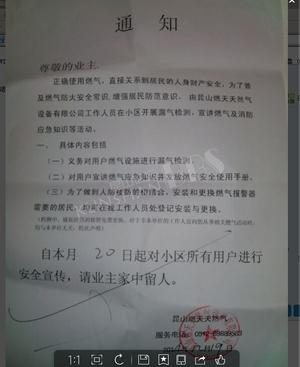 通 知
尊敬的业主:
正确使用燃气,直接关系到居民的人身财产安全,为了普
及燃气防火安全常识,增强居民防范意识。由昆山燃天天然气
设备有限公司工作人员在小区开展漏气检测,宣讲燃气及消防
应急知识等活动。
一、具体内容包括
(一)义务对用户燃气设施进行漏气检测。
(二)对用户宣讲燃气应急知识并发放燃气安全使用手册。
(三)为了做到人防技防的相结合,安装和更换燃气报警器
需要的居民,均可在我工作人员处登记安装与更换。
自本月 20 日起对小区所有用户进行
安全宣传,请业主家中留人。
昆山燃天天然气
服务电话:
1:1